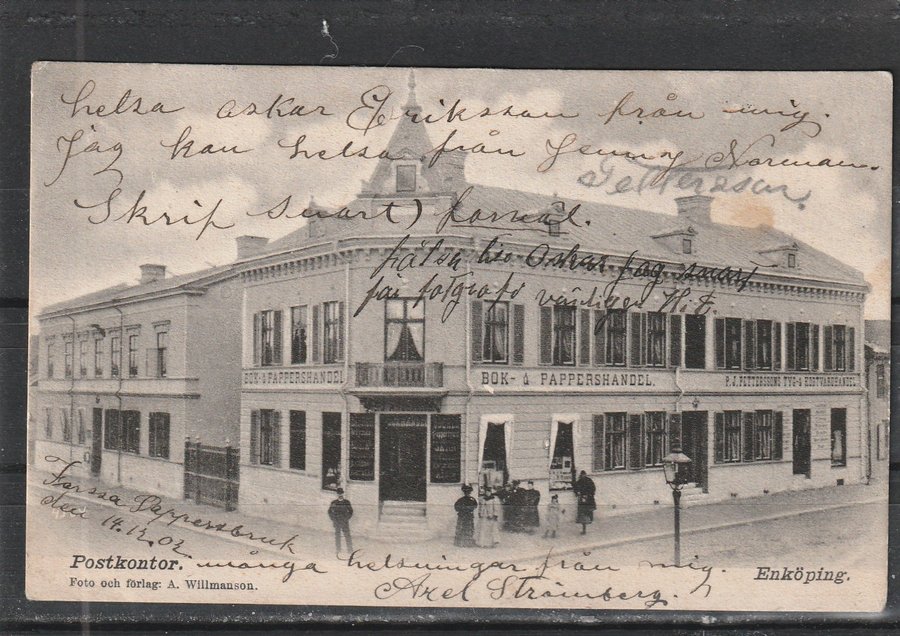 helsa oskar Eriksson från mig.
Jag kan helsa från Jenny Norman.
Pettersson.
Skrif snart) farväl.
hälsa
BOK- & PAPPERSHANDEL
BOK- & PAPPERSHANDEL.
P. J. PETTERSSONS TYG- & KORTVARUHANDEL
Forssa Pappersbruk
den 14.12.02.
många helsningar från mig.
Axel Strömberg.
Postkontor.
Foto och förlag: A. Willmanson.
Enköping.